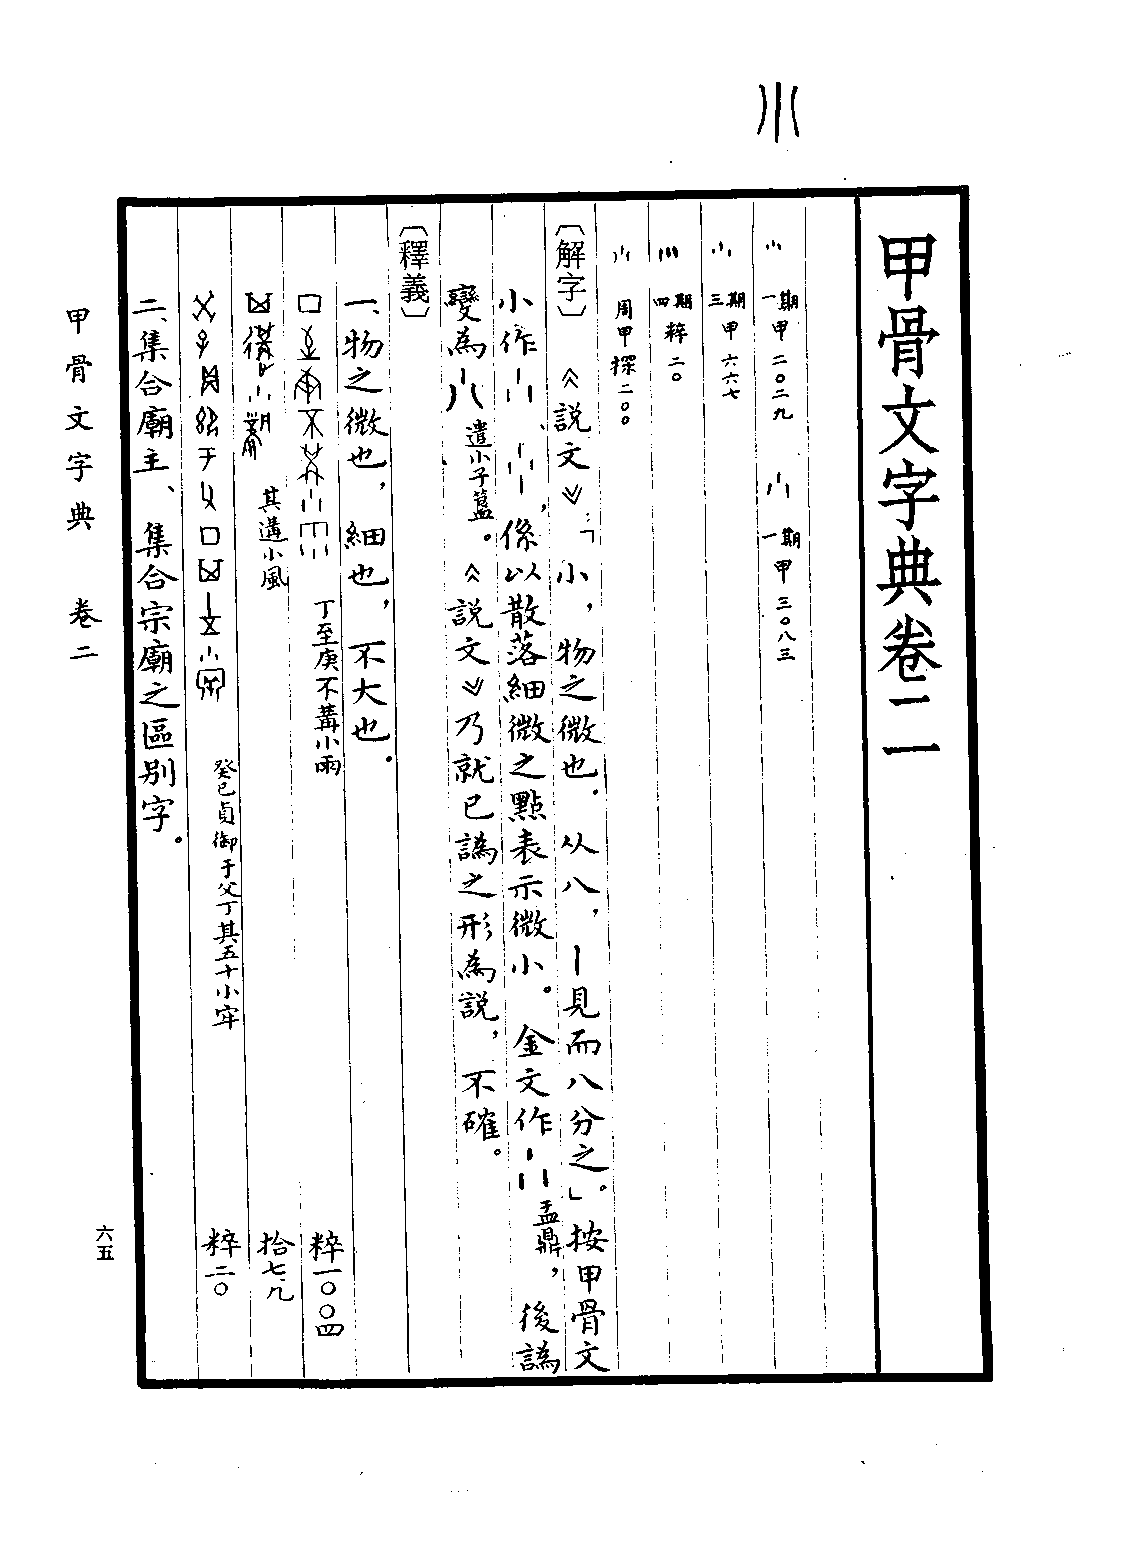 甲骨文字典卷二
一期 甲二〇二九 一期 甲三〇八三
三期 甲六六七
四期 粹二〇
周甲探二〇〇
〔解字〕《說文》：「小，物之微也．从八，丨見而八分之。」按甲骨文
小作、，係以散落細微之點表示微小。金文作盂鼎，後譌
變為遣小子簋。《說文》乃就已譌之形為說，不確。
〔釋義〕
一、物之微也，細也，不大也．
丁至庚不冓小雨 粹一〇〇四
其遘小風 拾七.九
癸巳貞御于父丁其五十小牢 粹二〇
二、集合廟主、集合宗廟之區別字。
甲骨文字典 卷二
六五